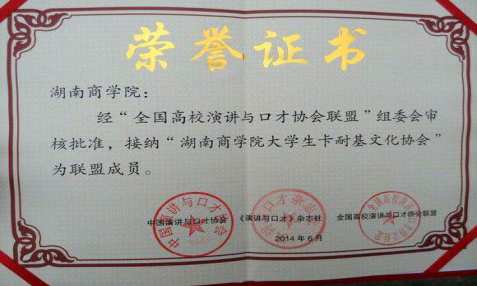 荣誉证书
湖南商学院：
经“全国高校演讲与口才协会联盟”组委会审
核批准，接纳“湖南商学院大学生卡耐基文化协会”
为联盟成员。
中国演讲与口才协会 《演讲与口才》杂志社 全国高校演讲与口才协会联盟
2014年6月